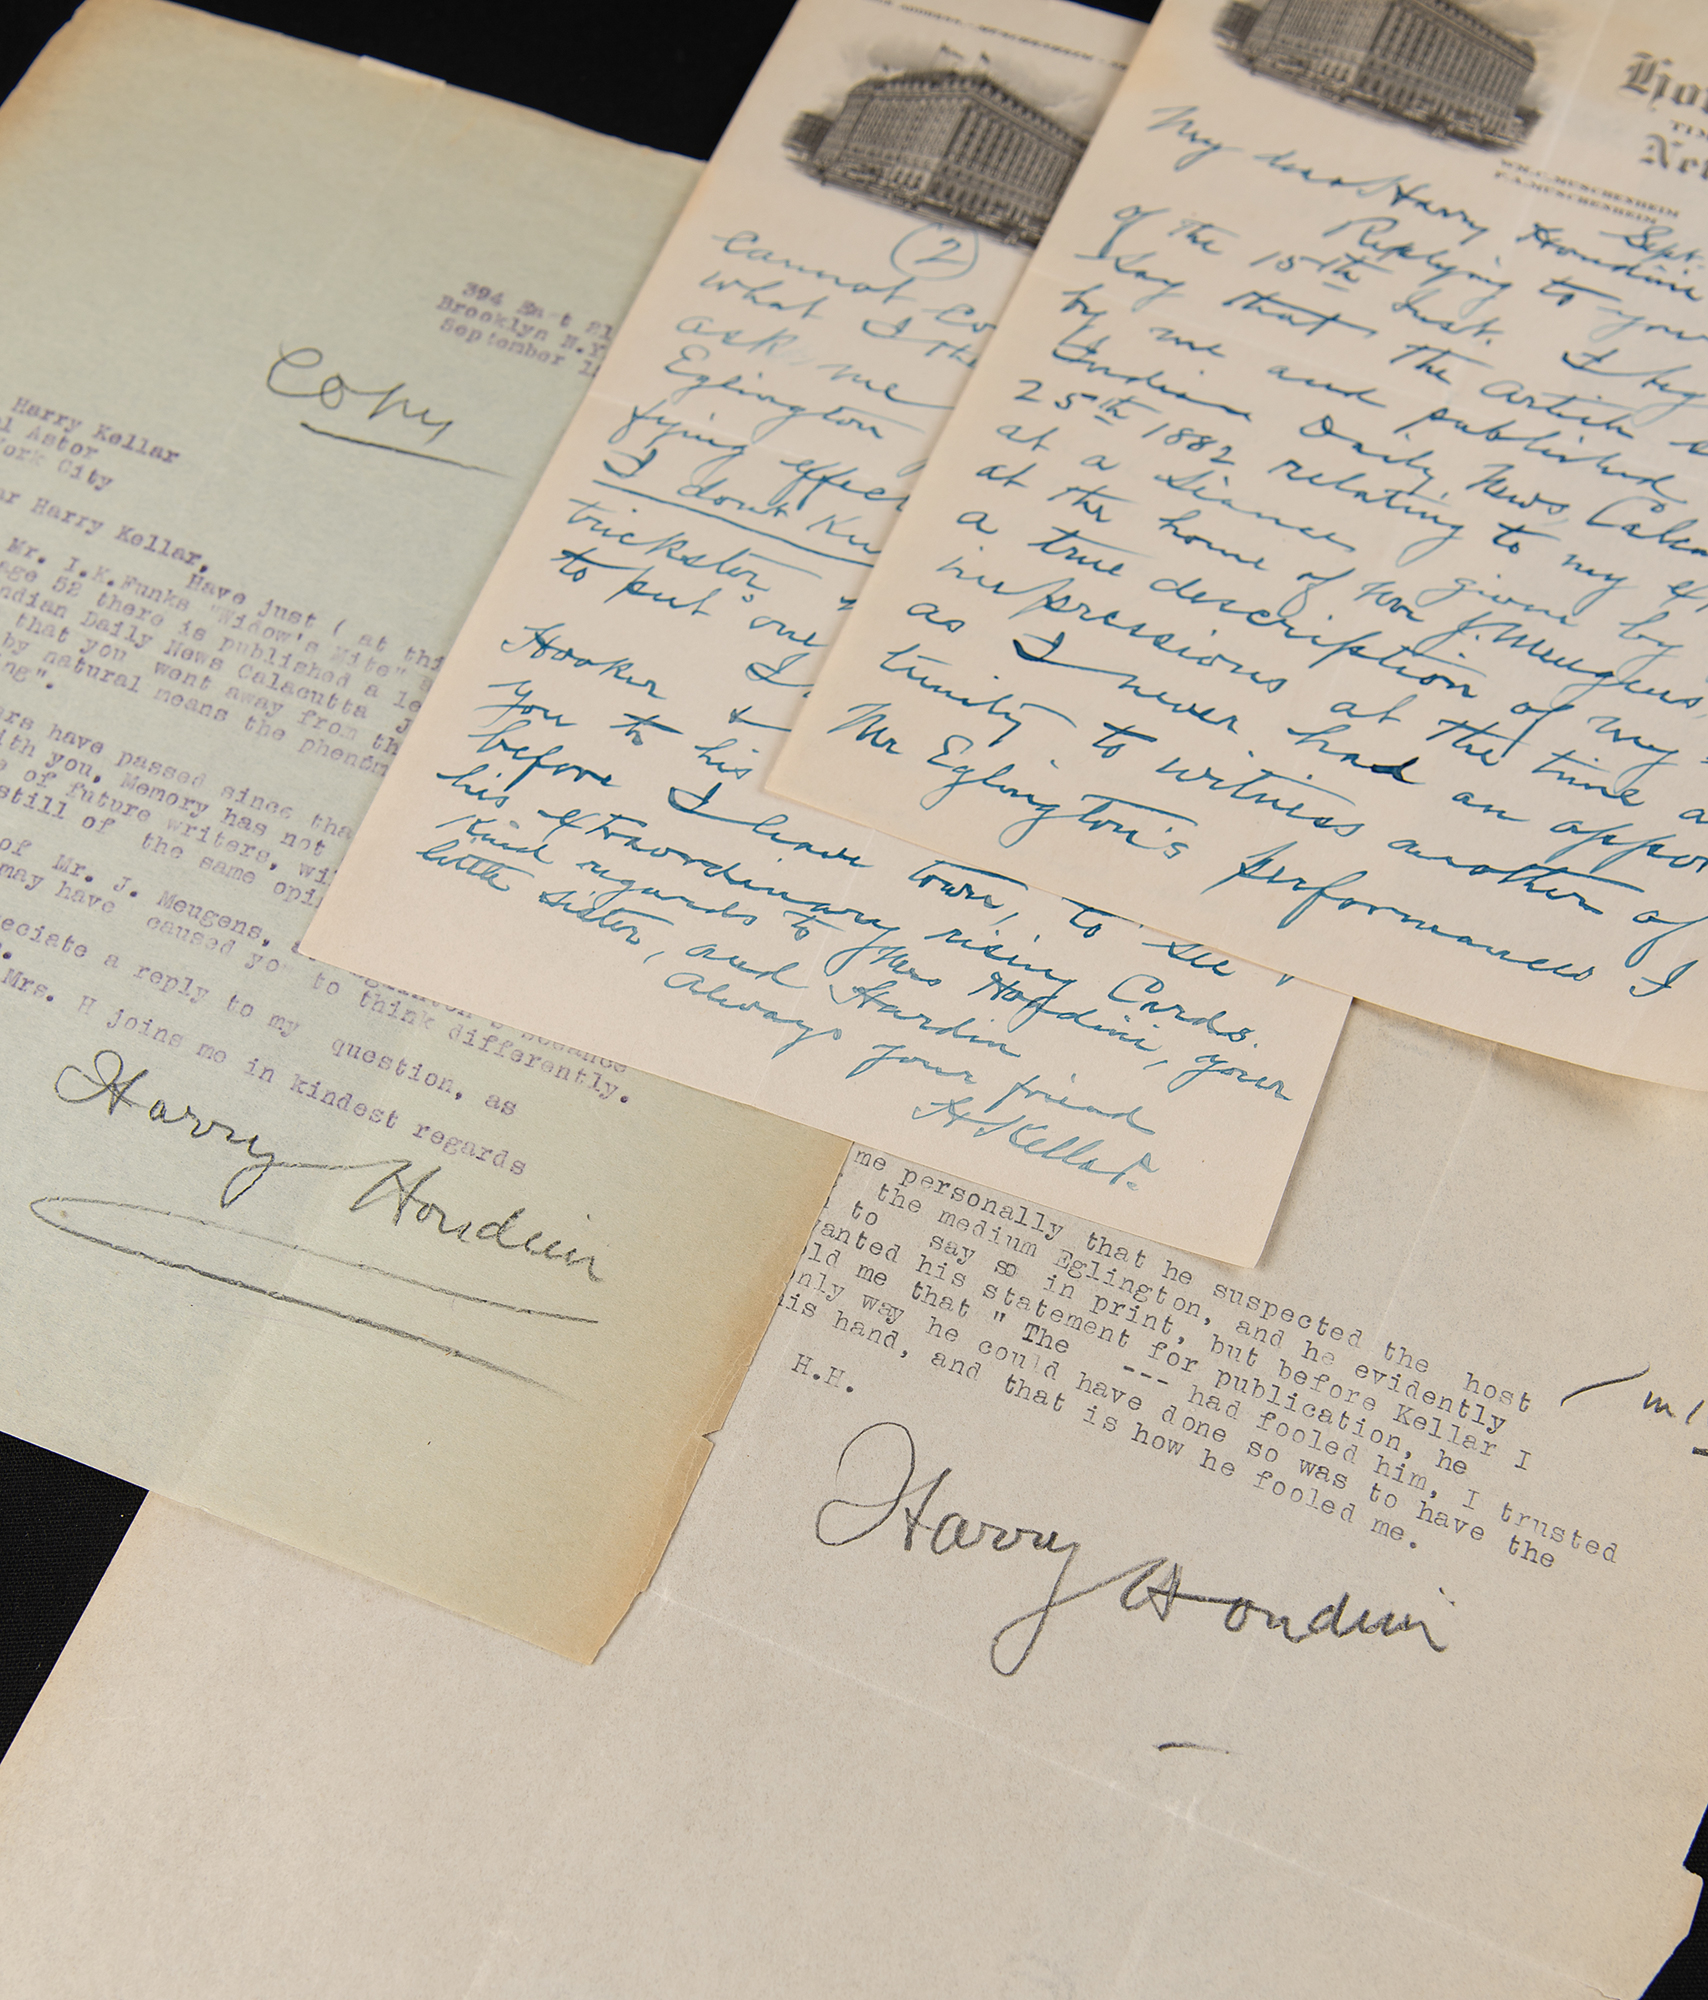 394 Ea t 21
Brooklyn N.Y
September 1
Copy
Harry Kellar
l Astor
York City
ar Harry Kellar,
Have just ( at thi
Mr. I.K.Funks "Widow's Mite"
age 52 there is published a le
ndian Daily News Calacutta J
that you went away from th
by natural means the phenom
ng".
ars have passed since tha
ith you, Memory has not
e of future writers, wil
still of the same opi
of Mr. J. Meugens,
may have caused yo to think differently.
eciate a reply to my question, as
Mrs. H joins me in kindest regards
Harry Houdini
2
cannot co
what I th
ask me
Eglington
fying effec
I dont Kn
trickster
to put one
Hooker I
you to his
before I leave town, to see
his extraordinary rising Cards.
Kind regards to Mrs Houdini, your
little sister, and Hardin
Always your friend
H Kellar.
Hot
TIM
New
WM.C.MUSCHENHEIM
F.A.MUSCHENHEIM
Sept.
My dear Harry Houdini
Replying to your
of the 15th Inst. I beg
say that the article
by me and published
Indian Daily News, Calcu
25th 1882 relating to my ex
at a Seance given by
at the home of Mr J. Meugens
a true description of my
impressions at the time a
as I never had an oppor
tunity to witness another of
Mr Eglington's performances I
me personally that he suspected the host
the medium Eglington, and he evidently
to say so in print, but before Kellar I
wanted his statement for publication, he
old me that " The --- had fooled him, I trusted
only way he could have done so was to have the
his hand, and that is how he fooled me.
H.H.
Harry Houdini